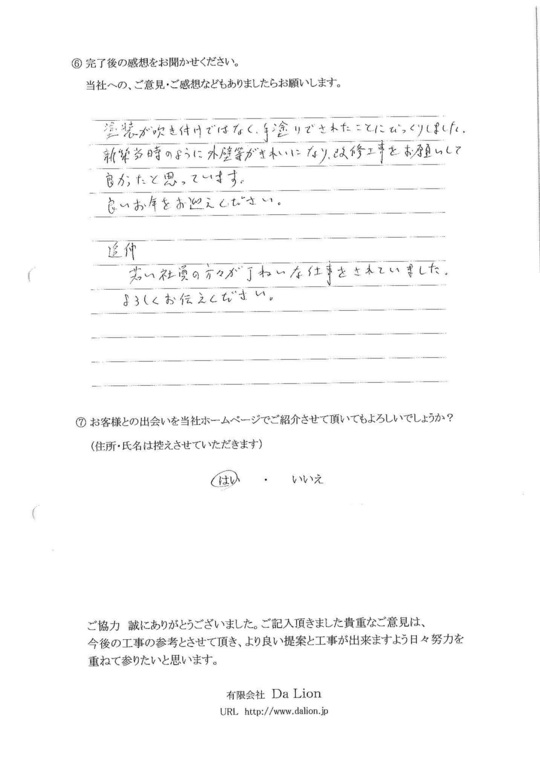 ⑥ 完了後の感想をお聞かせください。
当社への、ご意見・ご感想などもありましたらお願いします。
塗装が吹き付けではなく、手塗りでされたことにびっくりしました。
新築当時のように外壁等がきれいになり、改修工事をお願いして
良かったと思っています。
良いお年をお迎えください。
追伸
若い社員の方々が丁ねいな仕事をされていました。
よろしくお伝えください。
⑦ お客様との出会いを当社ホームページでご紹介させて頂いてもよろしいでしょうか？
（住所・氏名は控えさせていただきます）
はい ・ いいえ
ご協力　誠にありがとうございました。ご記入頂きました貴重なご意見は、
今後の工事の参考とさせて頂き、より良い提案と工事が出来ますよう日々努力を
重ねて参りたいと思います。
有限会社 Da Lion
URL http://www.dalion.jp